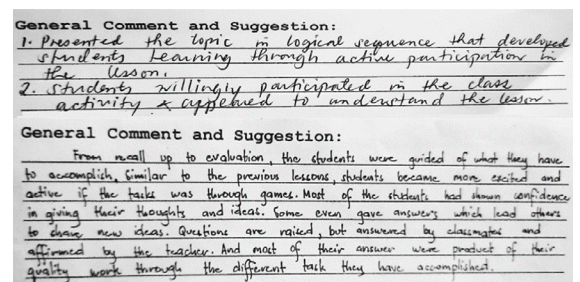 General Comment and Suggestion:
1. Presented the topic in logical sequence that developed
students learning through active participation in
the lesson.
2. Students willingly participated in the class
activity & appeared to understand the lesson.
General Comment and Suggestion:
From recall up to evaluation, the students were guided of what they have
to accomplish, Similar to the previous lessons, students became more excited and
active if the tasks was through games. Most of the students had shown confidence
in giving their thoughts and ideas. Some even gave answers which lead others
to share new ideas. Questions are raised, but answered by classmates and
affirmed by the teacher. And most of their answer were product of their
quality work through the different task they have accomplished.